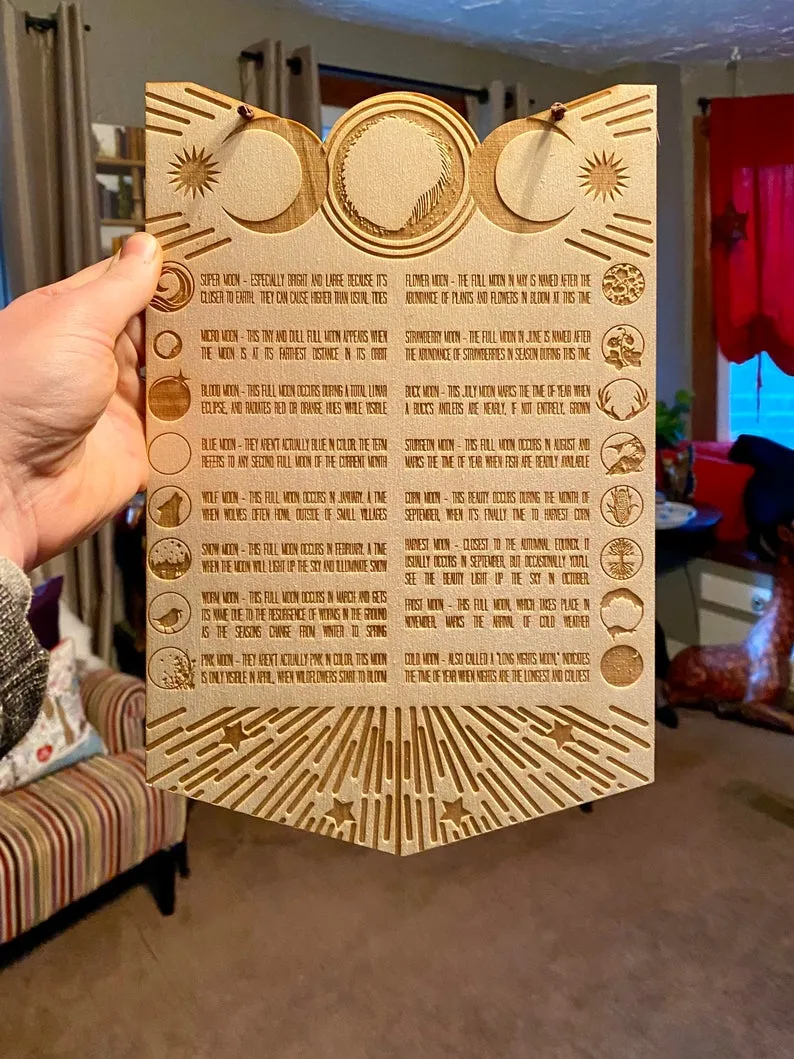 SUPER MOON - ESPECIALLY BRIGHT AND LARGE BECAUSE IT'S
CLOSER TO EARTH. THEY CAN CAUSE HIGHER THAN USUAL TIDES
MICRO MOON - THIS TINY AND DULL FULL MOON APPEARS WHEN
THE MOON IS AT ITS FARTHEST DISTANCE IN ITS ORBIT
BLOOD MOON - THIS FULL MOON OCCURS DURING A TOTAL LUNAR
ECLIPSE, AND RADIATES RED OR ORANGE HUES WHILE VISIBLE
BLUE MOON - THEY AREN'T ACTUALLY BLUE IN COLOR. THE TERM
REFERS TO ANY SECOND FULL MOON OF THE CURRENT MONTH
WOLF MOON - THIS FULL MOON OCCURS IN JANUARY, A TIME
WHEN WOLVES OFTEN HOWL OUTSIDE OF SMALL VILLAGES
SNOW MOON - THIS FULL MOON OCCURS IN FEBRUARY, A TIME
WHEN THE MOON WILL LIGHT UP THE SKY AND ILLUMINATE SNOW
WORM MOON - THIS FULL MOON OCCURS IN MARCH AND GETS
ITS NAME DUE TO THE RESURGENCE OF WORMS IN THE GROUND
AS THE SEASONS CHANGE FROM WINTER TO SPRING
PINK MOON - THEY AREN'T ACTUALLY PINK IN COLOR. THIS MOON
IS ONLY VISIBLE IN APRIL, WHEN WILDFLOWERS START TO BLOOM
FLOWER MOON - THE FULL MOON IN MAY IS NAMED AFTER THE
ABUNDANCE OF PLANTS AND FLOWERS IN BLOOM AT THIS TIME
STRAWBERRY MOON - THE FULL MOON IN JUNE IS NAMED AFTER
THE ABUNDANCE OF STRAWBERRIES IN SEASON DURING THIS TIME
BUCK MOON - THIS JULY MOON MARKS THE TIME OF YEAR WHEN
A BUCK'S ANTLERS ARE NEARLY, IF NOT ENTIRELY, GROWN
STURGEON MOON - THIS FULL MOON OCCURS IN AUGUST AND
MARKS THE TIME OF YEAR WHEN FISH ARE READILY AVAILABLE
CORN MOON - THIS BEAUTY OCCURS DURING THE MONTH OF
SEPTEMBER, WHEN IT'S FINALLY TIME TO HARVEST CORN
HARVEST MOON - CLOSEST TO THE AUTUMNAL EQUINOX, IT
USUALLY OCCURS IN SEPTEMBER, BUT OCCASIONALLY YOU'LL
SEE THE BEAUTY LIGHT UP THE SKY IN OCTOBER.
FROST MOON - THIS FULL MOON, WHICH TAKES PLACE IN
NOVEMBER, MARKS THE ARRIVAL OF COLD WEATHER
COLD MOON - ALSO CALLED A "LONG NIGHTS MOON," INDICATES
THE TIME OF YEAR WHEN NIGHTS ARE THE LONGEST AND COLDEST